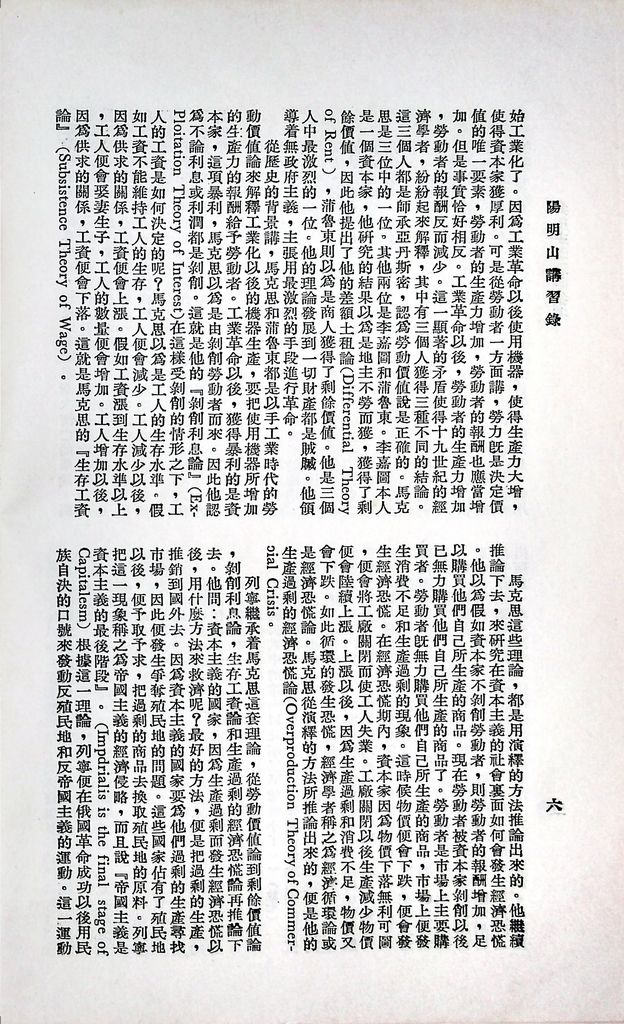 陽明山講習錄
六
始工業化了。因為工業革命以後使用機器，使得生產力大增，
使得資本家獲厚利。可是從勞動者一方面講，勞力既是決定價
值的唯一要素，勞動者的生產力增加，勞動者的報酬也應當增
加。但是事實恰好相反。工業革命以後，勞動者的生產力增加
，勞動者的報酬反而減少。這一顯著的矛盾使得十九世紀的經
濟學者，紛紛起來解釋，其中有三個人獲得三種不同的結論。
這三個人都是師承亞丹斯密，認為勞動價值說是正確的。馬克
思是三位中的一位。其他兩位是李嘉圖和蒲魯東。李嘉圖本人
是一個資本家，他研究的結果以為是地主不勞而獲，獲得了剩
餘價值，因此他提出了他的差額土租論(Differential Theory
of Rent)，蒲魯東則以為是商人獲得了剩餘價值。他是三個
人中最激烈的一位。他的理論發展到一切財產都是賊贓。他領
導着無政府主義，主張用最激烈的手段進行革命。
從歷史的背景講，馬克思和蒲魯東都是以手工業時代的勞
動價值論來解釋工業化以後的機器生產，要把使用機器所增加
的生產力的報酬給予勞動者。工業革命以後，獲得暴利的是資
本家，這項暴利，馬克思以為是由剝削勞動者而來。因此他認
為不論利息或利潤都是剝削。這就是他的『剝削利息論』(Ex-
Ploitation Theory of Interest)在這樣受剝削的情形之下，工
人的工資是如何決定的呢？馬克思以為是工人的生存水準。假
如工資不能維持工人的生存，工人便會減少。工人減少以後，
因為供求的關係，工資便會上漲。假如工資漲到生存水準以上
，工人便會娶妻生子，工人的數量便會增加。工人增加以後，
因為供求的關係，工資便會下落。這就是馬克思的『生存工資
論』(Subsistence Theory of Wage)。
馬克思這些理論，都是用演繹的方法推論出來的。他繼續
推論下去，來研究在資本主義的社會裏面如何會發生經濟恐慌
。他以為假如資本家不剝削勞動者，則勞動者的報酬增加，足
以購買他們自己所生產的商品。現在勞動者被資本家剝削以後
已無力購買他們自己所生產的商品了。勞動者是市場上主要購
買者。勞動者既無力購買他們自己所生產的商品，市場上便發
生消費不足和生產過剩的現象。這時候物價便會下跌，便會發
生經濟恐慌。在經濟恐慌期內，資本家因為物價下落無利可圖
，便會將工廠關閉而使工人失業。工廠關閉以後生產減少物價
便會陸續上漲。上漲以後，因為生產過剩和消費不足，物價又
會下跌。如此循環的發生恐慌，經濟學者稱之為經濟循環論或
是經濟恐慌論。馬克思從演繹的方法所推論出來的，便是他的
生產過剩的經濟恐慌論(Overproduction Theory of Commer-
cial Crisis。
列寧繼承着馬克思這套理論，從勞動價值論到剩餘價值論
，剝削利息論，生存工資論和生產過剩的經濟恐慌論再推論下
去。他問：資本主義的國家，因為生產過剩而發生經濟恐慌以
後，用什麼方法來救濟呢？最好的方法，便是把過剩的生產，
推銷到國外去。因為資本主義的國家要為他們過剩的生產尋找
市場，因此便發生爭奪殖民地的問題。這些國家佔有了殖民地
以後，便予取予求，把過剩的商品去換取殖民地的原料。列寧
把這一現象稱之為帝國主義的經濟侵略，而且說『帝國主義是
資本主義的最後階段』。(Impdrialis is the final stage of
Capitalesm) 根據這一理論，列寧便在俄國革命成功以後用民
族自決的口號來發動反殖民地和反帝國主義的運動。這一運動